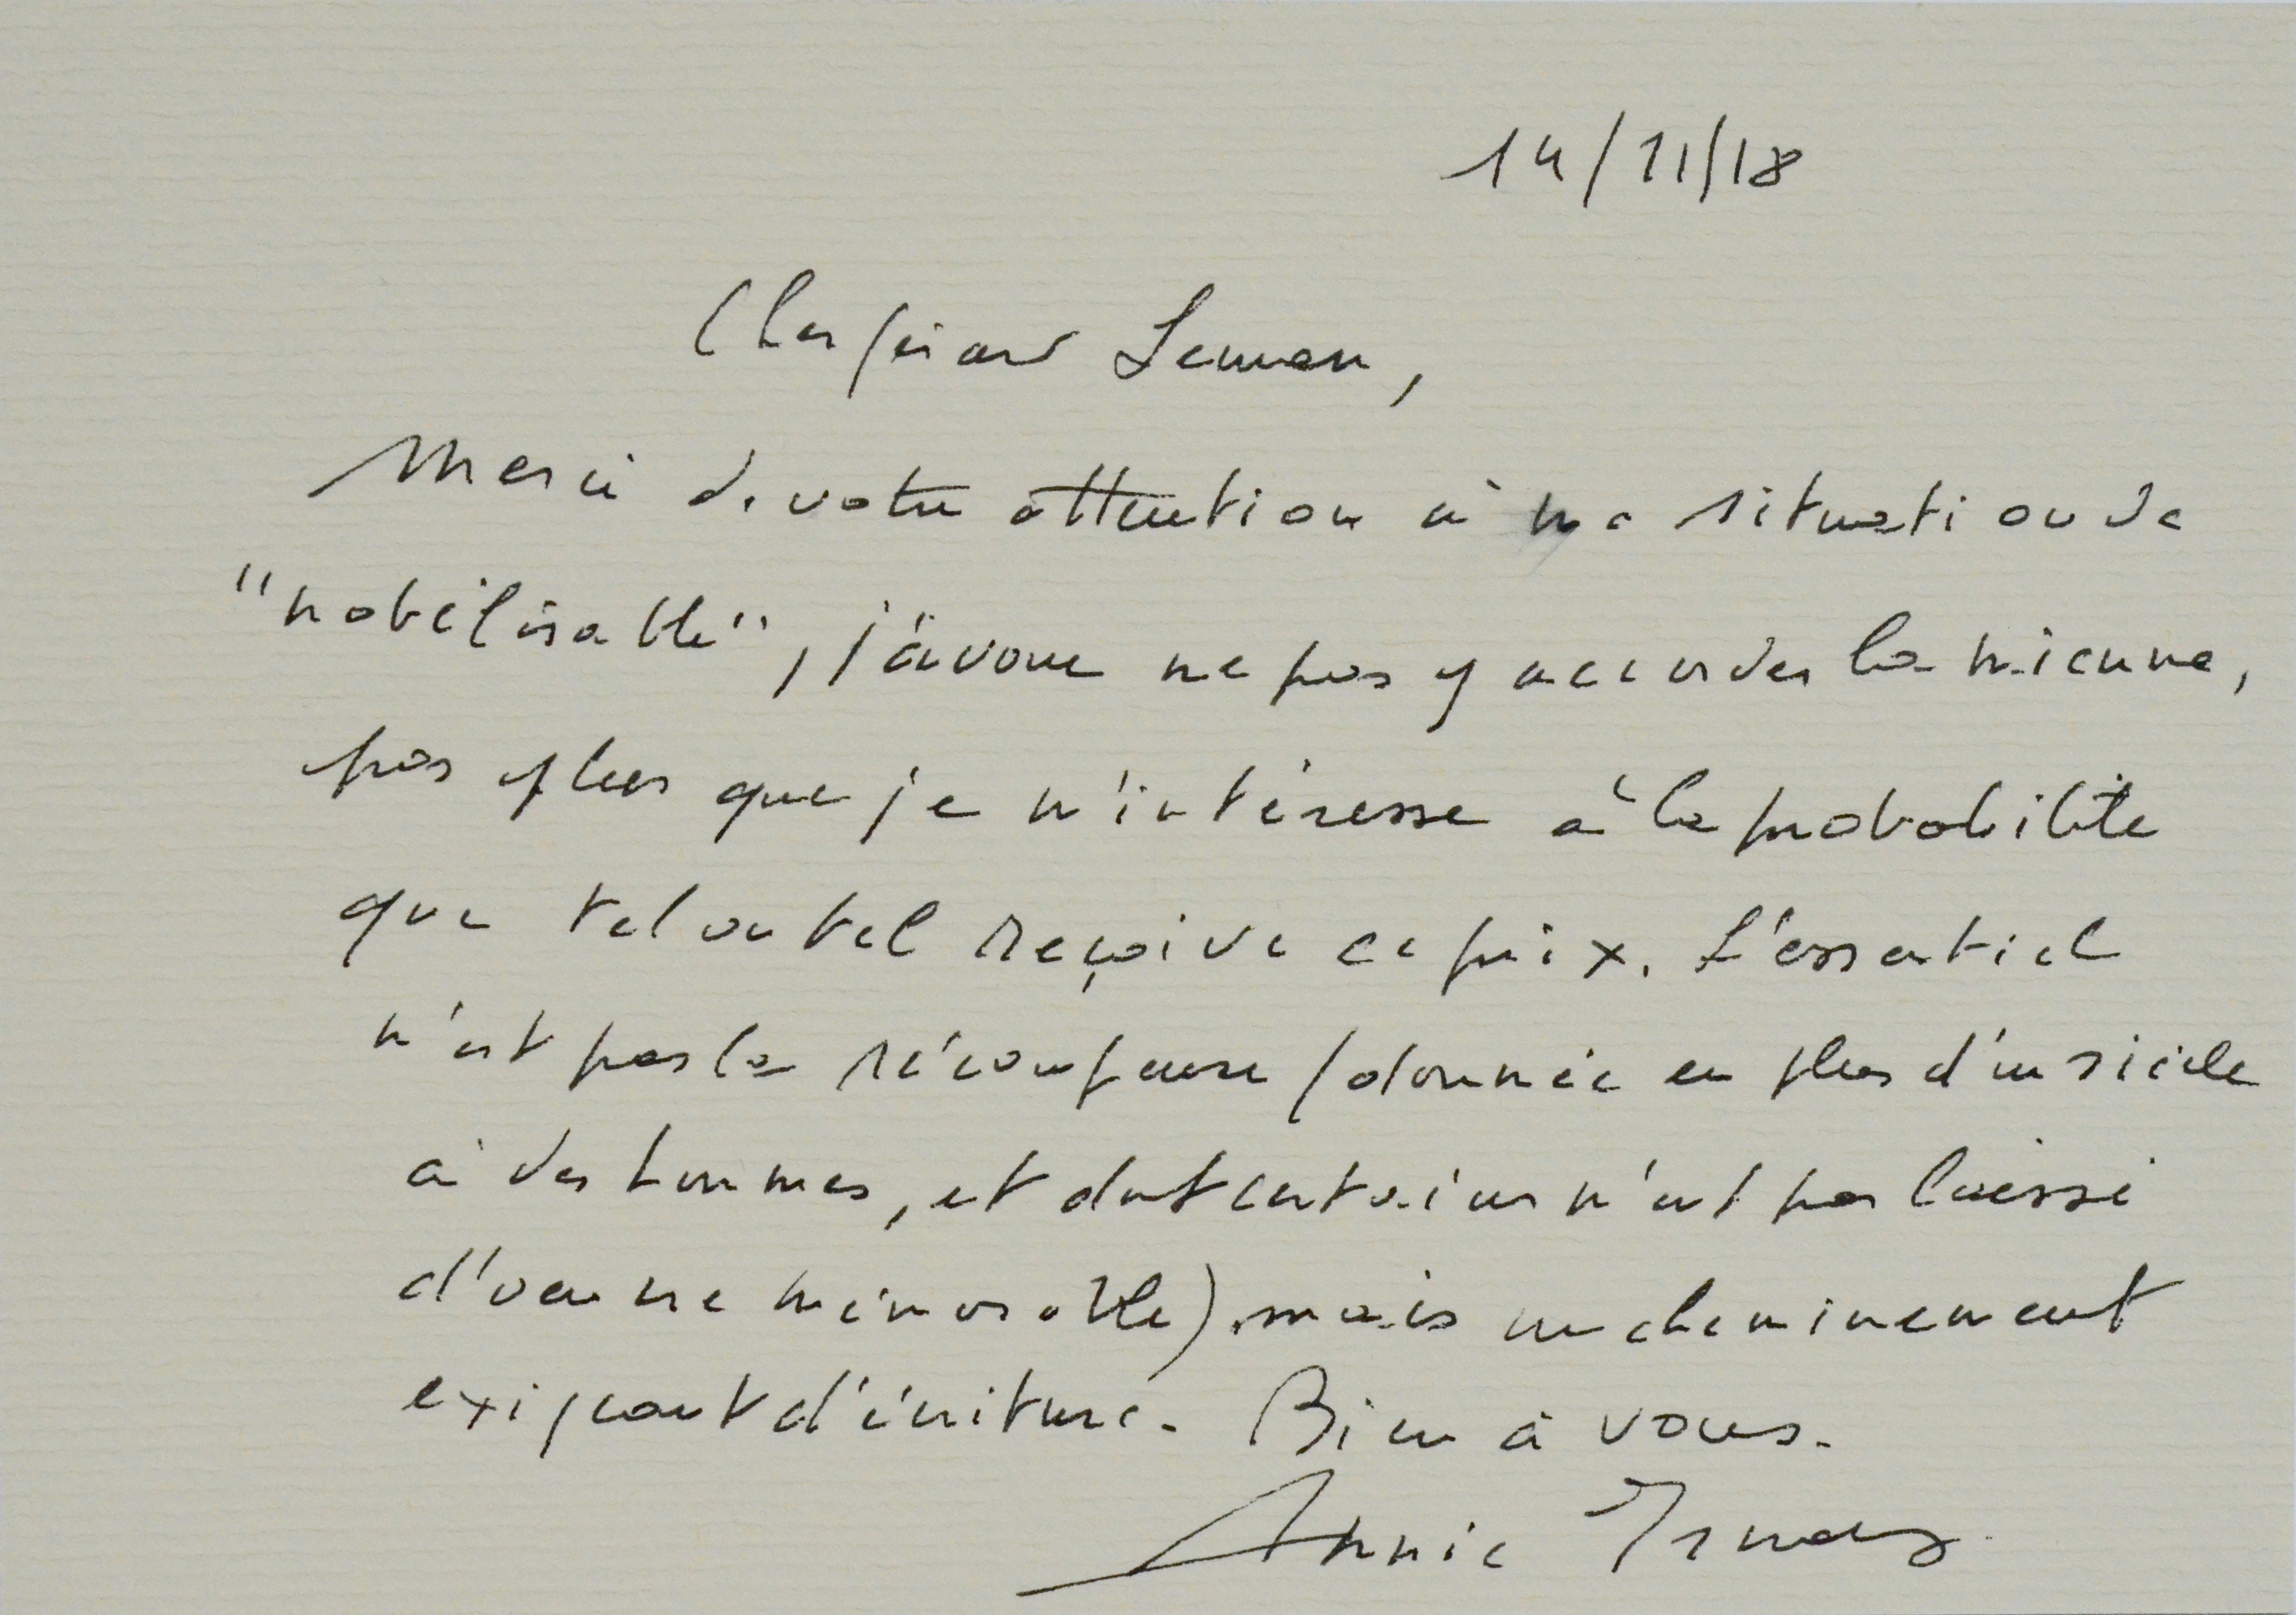 14/11/18
Cher Gérard Leman,
Merci de votre attention à ma situation de
"nobélisable", j'avoue ne pas y accorder la mienne,
pas plus que je m'intéresse à la probabilité
que tel ou tel reçoive ce prix. L'essentiel
n'est pas la récompense (donnée en plus d'un siècle
à des hommes, et dont certains n'ont pas laissé
d'œuvre mémorable) mais un cheminement
exigeant d'écriture. Bien à vous.
Annie Ernaux